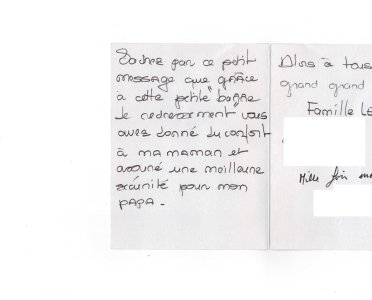 Sachez par ce petit
message que grâce
à cette petite "barre"
de redressement vous
avez donné du confort
à ma maman et
assuré une meilleure
sécurité pour mon
PAPA.
Alors à tous
grand grand
Famille LE
Mille fois me